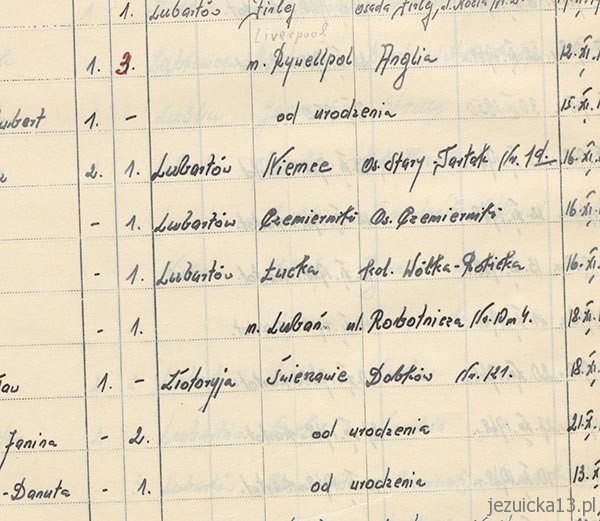 1. Lubartów Firlej osada Firlej,
Liverpool
1. 3. m. Rywellpol Anglia 12.XI.
1. - od urodzenia 15.XI.
2. 1. Lubartów Niemce Os. Stary-Tartak Nr. 19 16.XI.
- 1. Lubartów Czemierniki Os. Czemierniki 16.XI.
- 1. Lubartów Łucka kol. Wólka-Rokicka 16.XI.
- 1. m. Lubań ul. Robotnicza Nr. 10 m 4. 18.XI.
1. - Złotoryja Świerzawie Dobków Nr. 121. 18.XI.
Janina - 2. od urodzenia 21.XI.
-Danuta - 1. od urodzenia 13.XI.
jezuicka13.pl